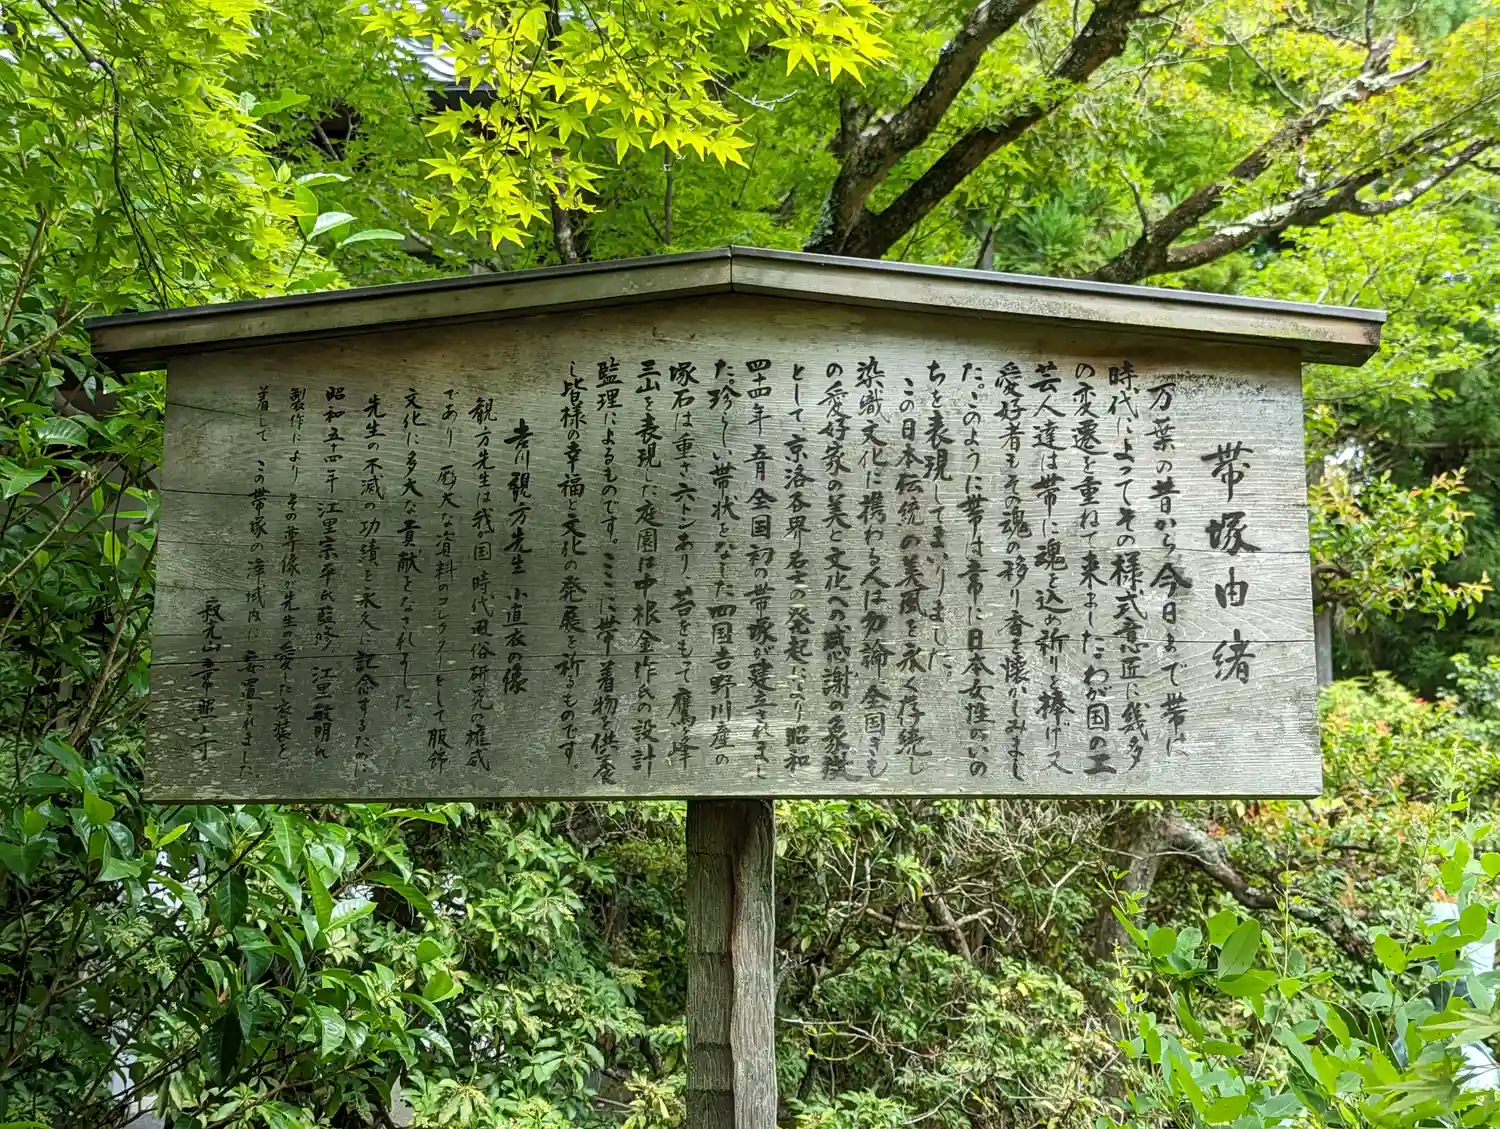 帯塚由緒
万葉の昔から今日まで帯は
時代によってその様式意匠に幾多
の変遷を重ねて来ました。わが国の工
芸人達は帯に魂を込め祈りを捧げ又
愛好者もその魂の移り香を懐かしみまし
た。このように帯は常に日本女性のいの
ちを表現してまいりました。
この日本伝統の美風を永く存続し
染織文化に携わる人は勿論全国きも
の愛好家の美と文化への感謝の象徴
として京洛各界名士の発起により昭和
四十四年五月全国初の帯塚が建立されまし
た。珍らしい帯状をなした四国吉野川産の
塚石は重さ六トンあり、苔をもて鷹ヶ峰
三山を表現した庭園は中根金作氏の設計
監理によるものです。ここに帯着物を供養
し皆様の幸福と文化の発展を祈るものです。
吉川観方先生小直衣の像
観方先生は我が国時代風俗研究の権威
であり厖大な資料のコレクターとして服飾
文化に多大な貢献をなされました。
先生の不滅の功績を永久に記念するために
昭和五十四年江里宗平氏監修江里敏明氏
製作によりその尊像が先生の愛した衣装を
着してこの帯塚の浄域内に安置されました。
寂光山常照寺